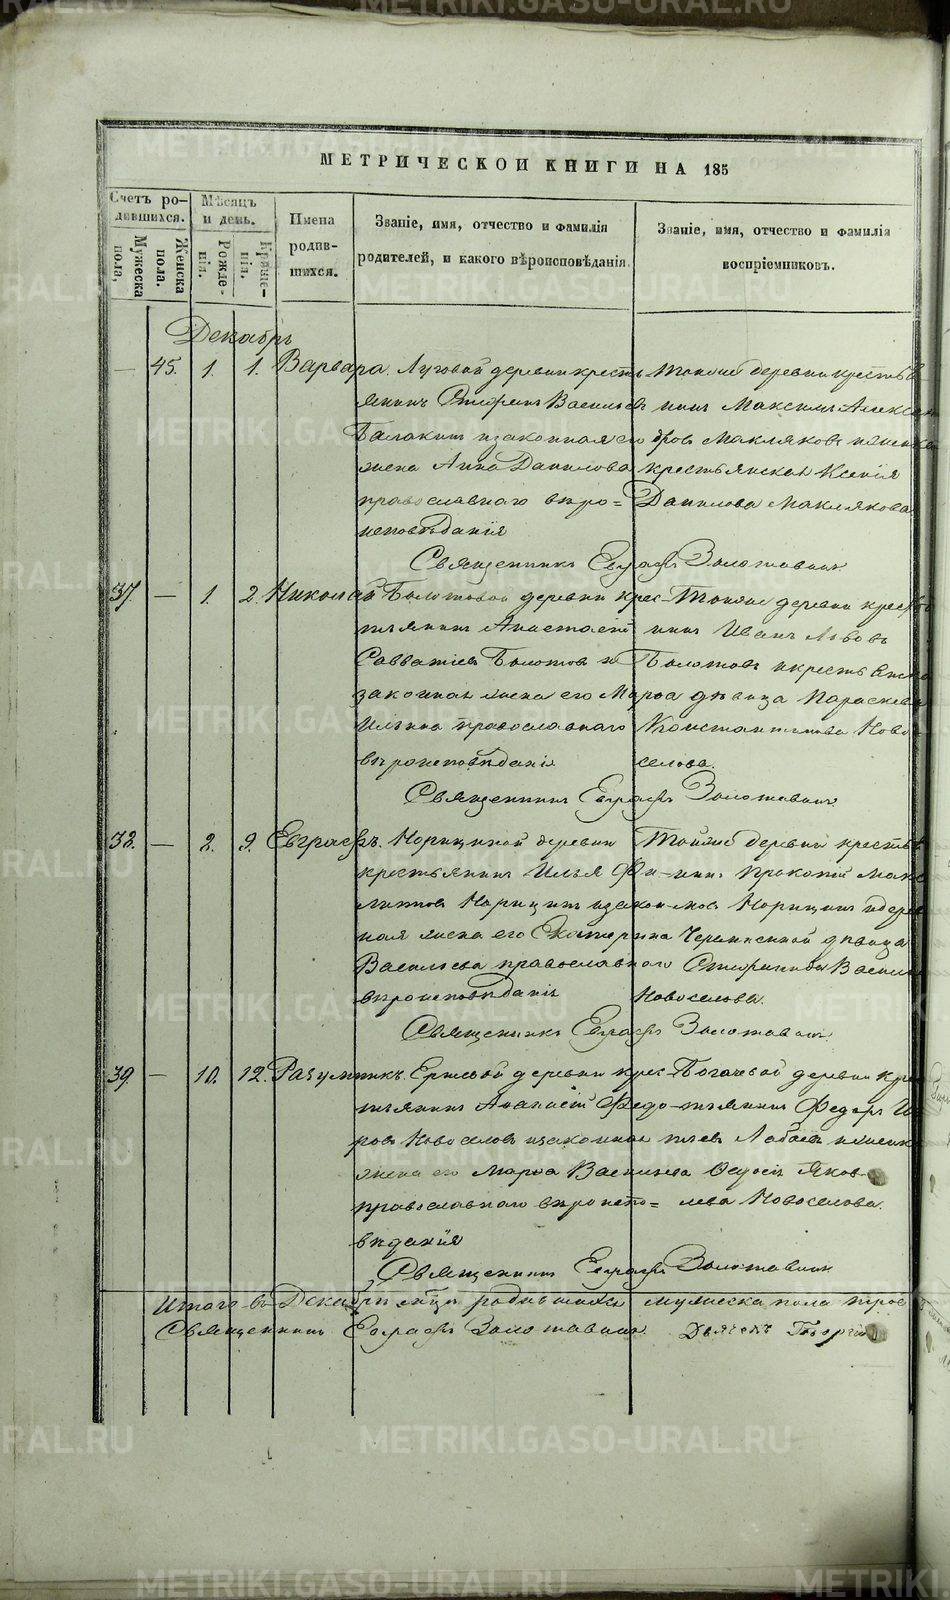 МЕТРИЧЕСКОЙ КНИГИ НА 185
Счетъ родившихся.
Мужеска пола,
Женска пола.
Мѣсяцъ и день.
Рожденія.
Крещенія.
Имена родившихся.
Званіе, имя, отчество и фамилія
родителей, и какого вѣроисповѣданія.
Званіе, имя, отчество и фамилія
воспріемниковъ.
Декабрь
— 45. 1. 1. Варвара. Луговой деревни кресть
янинъ Васильевъ
Балакинъ и законная его
жена Анна Данилова
православнаго вѣро=
исповѣданія
Тойже деревни кресть
нинъ Максимъ Алексан
дровъ Макляковъ и
крестьянская Ксенія
Данилова Маклякова
Священникъ Евграфъ Золотавинъ
37. — 1. 2. Николай Болотовой деревни крес-
тьянинъ Анастасій
Савватіевъ Болотовъ и
законная жена его Марѳа
Ильина православнаго
вѣроисповѣданія
Тойже деревни крес
нинъ Иванъ Львовъ
Болотовъ и крестьянс
дѣвица Параскева
Константинова Ново
селова.
Священникъ Евграфъ Золотавинъ
38. — 2. 9. Евграфъ. Норицыной деревни
крестьянинъ Илья Фи-
липповъ Норицынъ и закон-
ная жена его Екатерина
Васильева православнаго
вѣроисповѣданія
Тойже деревни кресть
нинъ Прокопій Макс
мовъ Норицынъ и дерев
дѣвица
Васил
Новоселова.
Священникъ Евграфъ Золотавинъ
39. — 10. 12. Разумникъ. Ершовой деревни крес-
тьянинъ Ананій Федо-
ровъ Новоселовъ и законная
жена его Марѳа Васильева
православнаго вѣроиспо=
вѣданія
деревни крес
тьянинъ Федоръ
Яков-
лева Новоселова.
Священникъ Евграфъ Золотавинъ
Итого въ Декабрѣ м-цѣ родившихся мужеска пола трое
Священникъ Евграфъ Золотавинъ Дьячекъ Георгій
METRIKI.GASO-URAL.RU